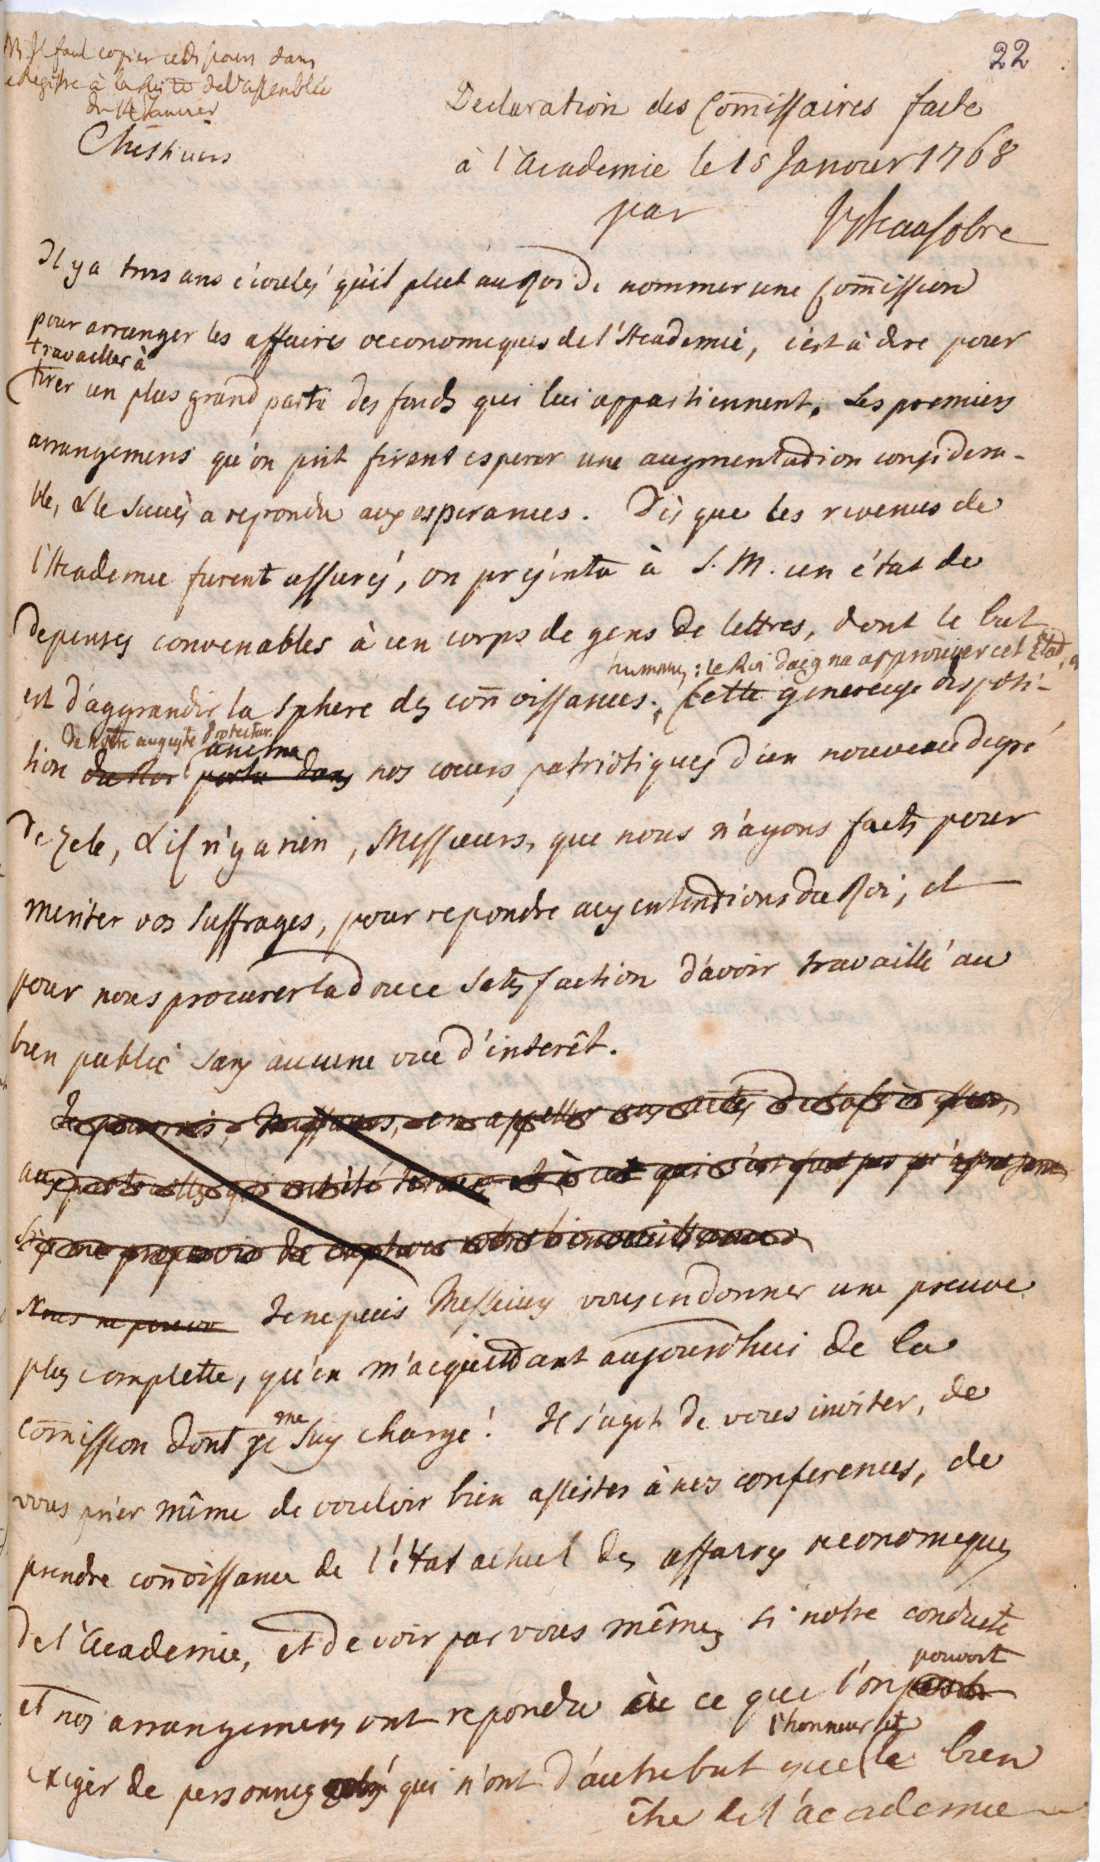 22
NB. Il faut copier ce discours dans
le Registre à la suite de l'assemblée
du 14 Janvier
Declaration des Com̄issaires faite
à l'Academie le 15 Janvier 1768
par
Il y a trois ans écoulés qu'il plut au Roi de nommer une Com̄ission
pour arranger les affaires oeconomiques de l'Academie, c'est à dire pour
travailler à
tirer un plus grand parti des fonds qui lui appartiennent. Les premiers
arrangemens qu'on prit firent esperer une augmentation considera-
ble, & le succès a repondu aux esperances. Dès que les revenus de
l'Academie furent assurés, on présenta à S. M. un état de
depenses convenables à un corps de gens de lettres, dont le but
humaines: le Roi daigna approuver cet Etat, &
est d'aggrandir la sphere des con̄oissances. Cette genereuse disposi-
de notre auguste Protecteur
anima
tion du Roi porta dans nos coeurs patriotiques d'un nouveau degré
de zele, & il n'y a rien, Messieurs, que nous n'ayons faits pour
meriter vos suffrages, pour repondre aux intentions du Roi, et
pour nous procurer la douce satisfaction d'avoir travaillé au
bien public sans aucune vue d'interêt.
Je pourrois, Messieurs, en appeller aux actes
Nous ne pouvon Je ne puis Messieurs vous en donner une preuve
plus complette, qu'en m'acquittant aujourdhui de la
me
com̄ission dont je suis chargé! Il s'agit de vous inviter, de
vous prier même de vouloir bien assister à nos conferences, de
prendre con̄oissance de l'état actuel des affaires oeconomiques
de l'Academie, et de voir par vous mêmes si notre conduite
pouvoit
et nos arrangemens ont repondu à ce que l'on
l'honneur et
exiger de personnes qui n'ont d'autre but que le bien
être de l'academie